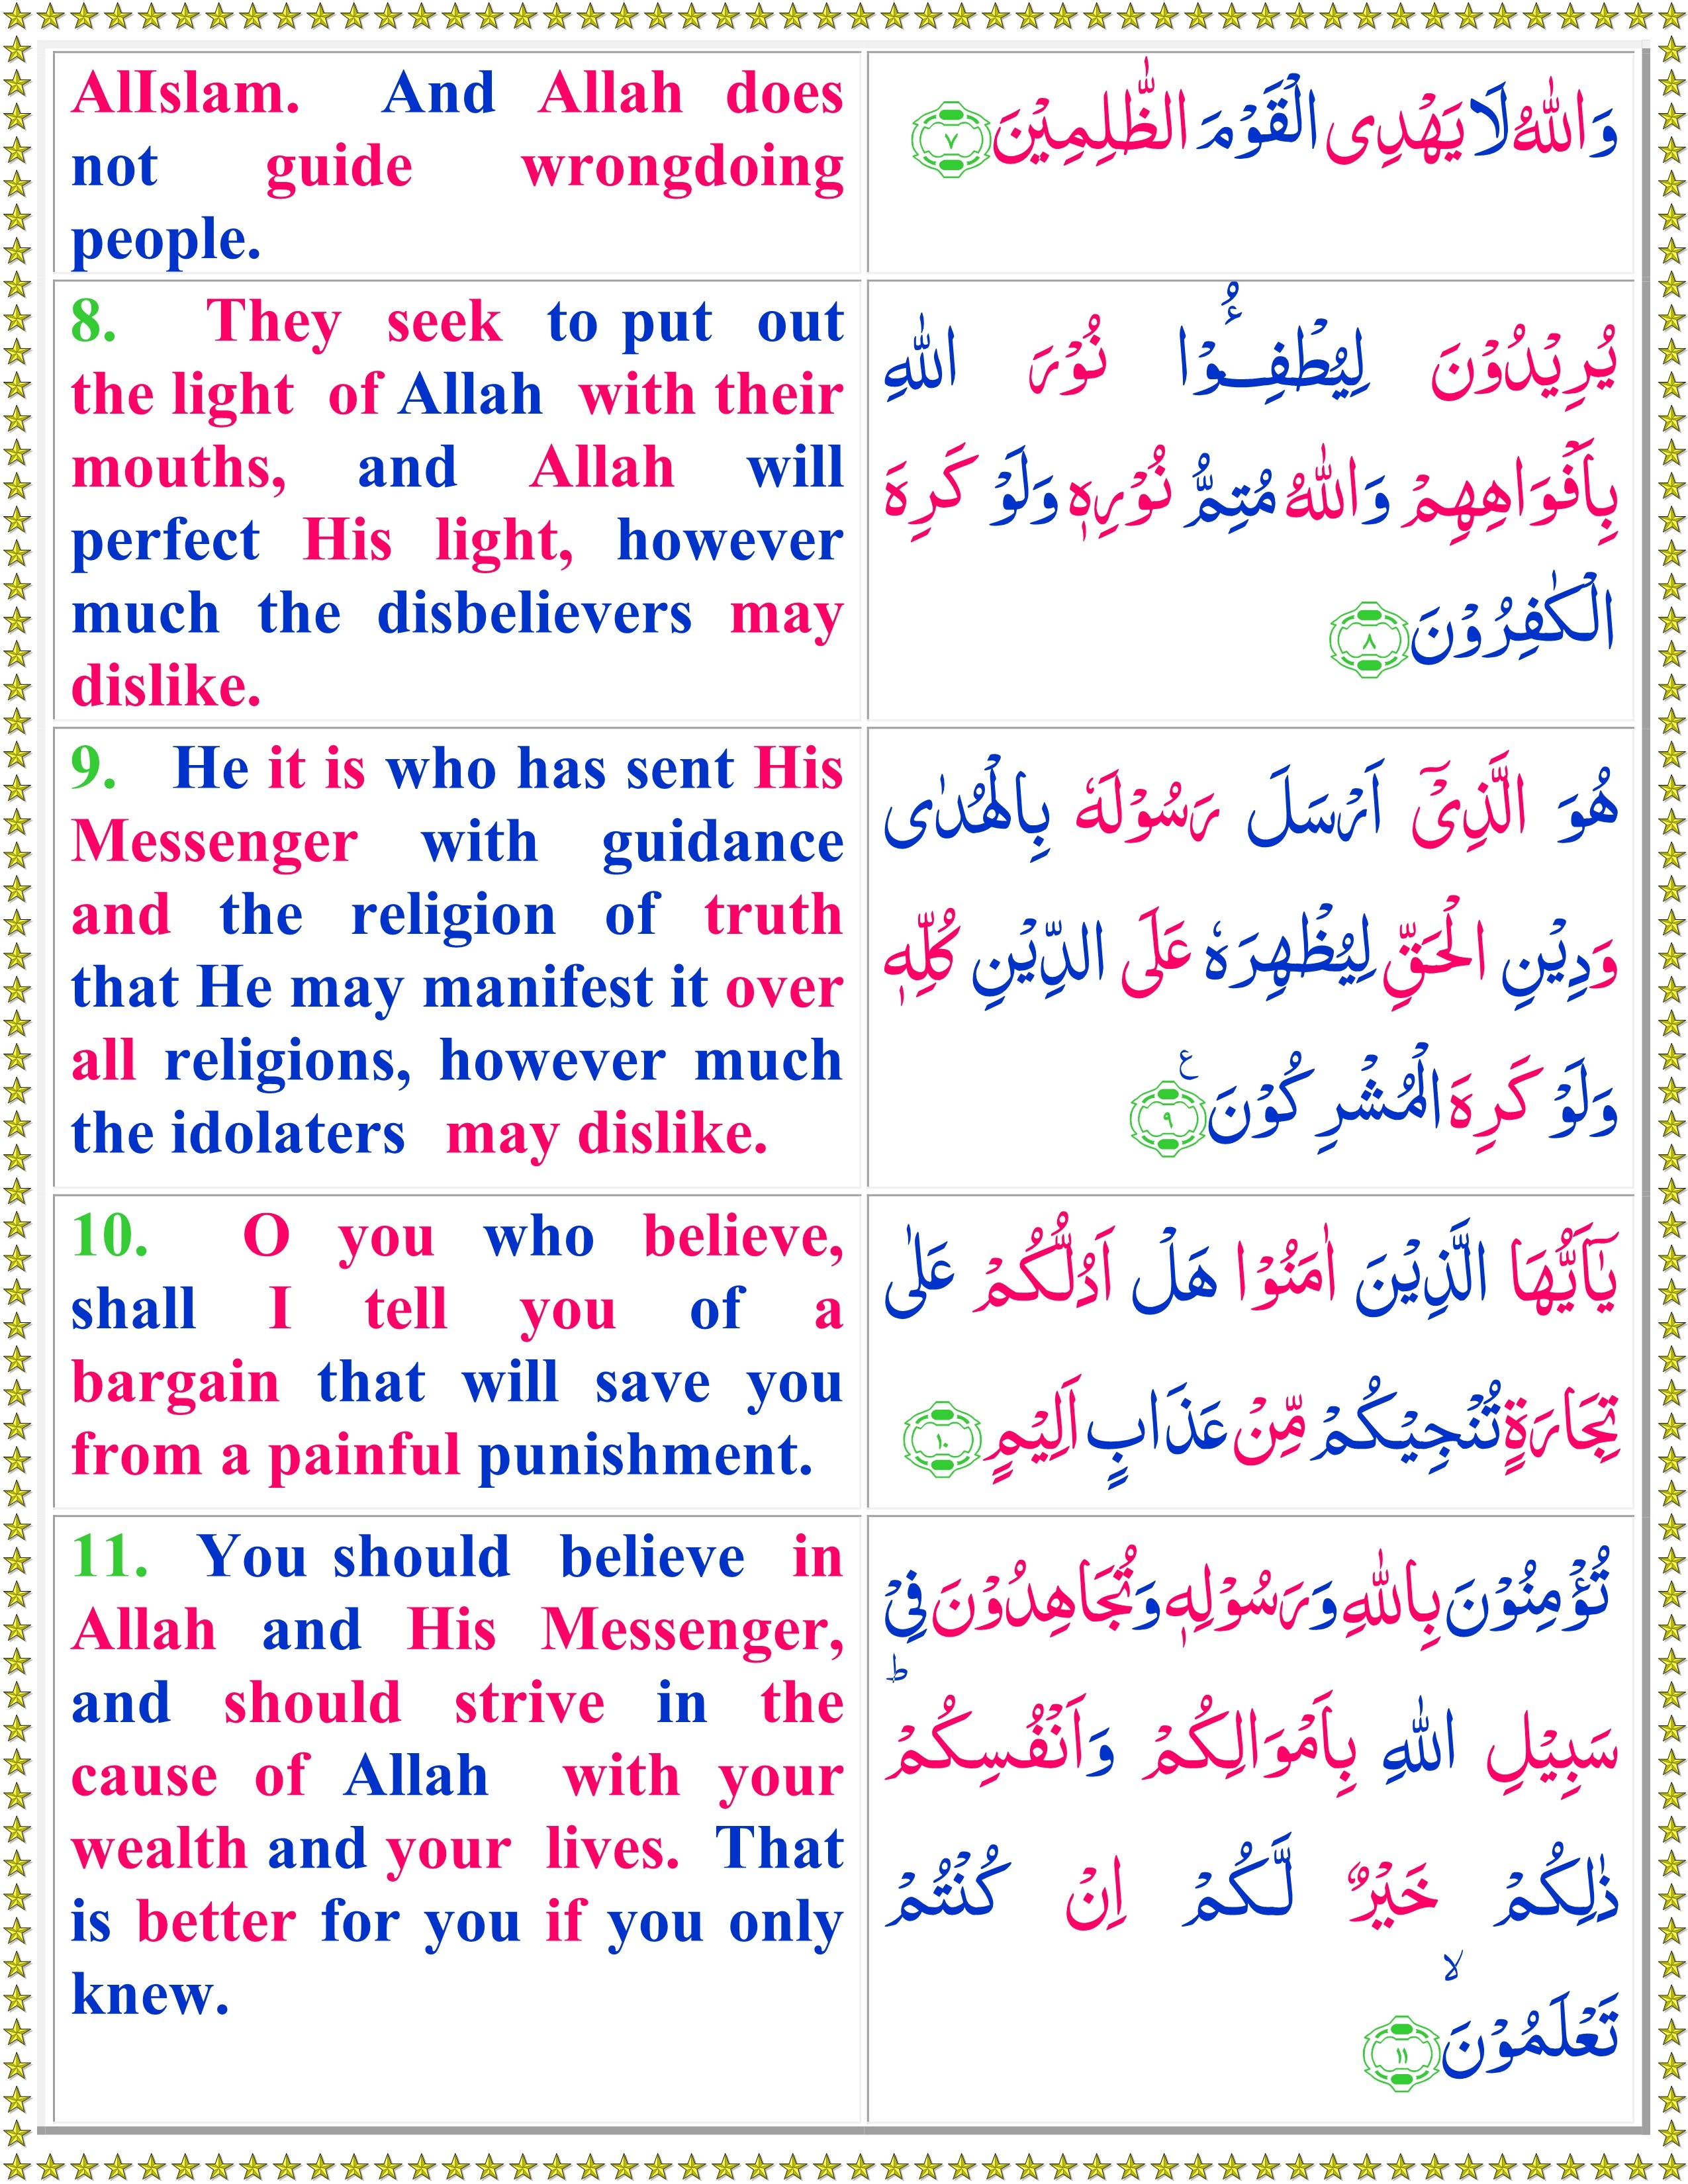 AlIslam. And Allah does
not guide wrongdoing
people.
وَاللّٰهُ لَا يَهْدِى الْقَوْمَ الظّٰلِمِيْنَ ٧
8. They seek to put out
the light of Allah with their
mouths, and Allah will
perfect His light, however
much the disbelievers may
dislike.
يُرِيْدُوْنَ لِيُطْفِـُٔوْا نُوْرَ اللّٰهِ
بِاَفْوَاهِهِمْ وَاللّٰهُ مُتِمُّ نُوْرِهٖ وَلَوْ كَرِهَ
الْكٰفِرُوْنَ ٨
9. He it is who has sent His
Messenger with guidance
and the religion of truth
that He may manifest it over
all religions, however much
the idolaters may dislike.
هُوَ الَّذِىْۤ اَرْسَلَ رَسُوْلَهٗ بِالْهُدٰى
وَدِيْنِ الْحَقِّ لِيُظْهِرَهٗ عَلَى الدِّيْنِ كُلِّهٖ
وَلَوْ كَرِهَ الْمُشْرِكُوْنَ ٩ ع
10. O you who believe,
shall I tell you of a
bargain that will save you
from a painful punishment.
يٰۤاَيُّهَا الَّذِيْنَ اٰمَنُوْا هَلْ اَدُلُّكُمْ عَلٰى
تِجَارَةٍ تُنْجِيْكُمْ مِّنْ عَذَابٍ اَلِيْمٍ ١٠
11. You should believe in
Allah and His Messenger,
and should strive in the
cause of Allah with your
wealth and your lives. That
is better for you if you only
knew.
تُؤْمِنُوْنَ بِاللّٰهِ وَرَسُوْلِهٖ وَتُجَاهِدُوْنَ فِىْ
سَبِيْلِ اللّٰهِ بِاَمْوَالِكُمْ وَاَنْفُسِكُمْ ؕ
ذٰلِكُمْ خَيْرٌ لَّكُمْ اِنْ كُنْتُمْ
تَعْلَمُوْنَ ۙ ١١